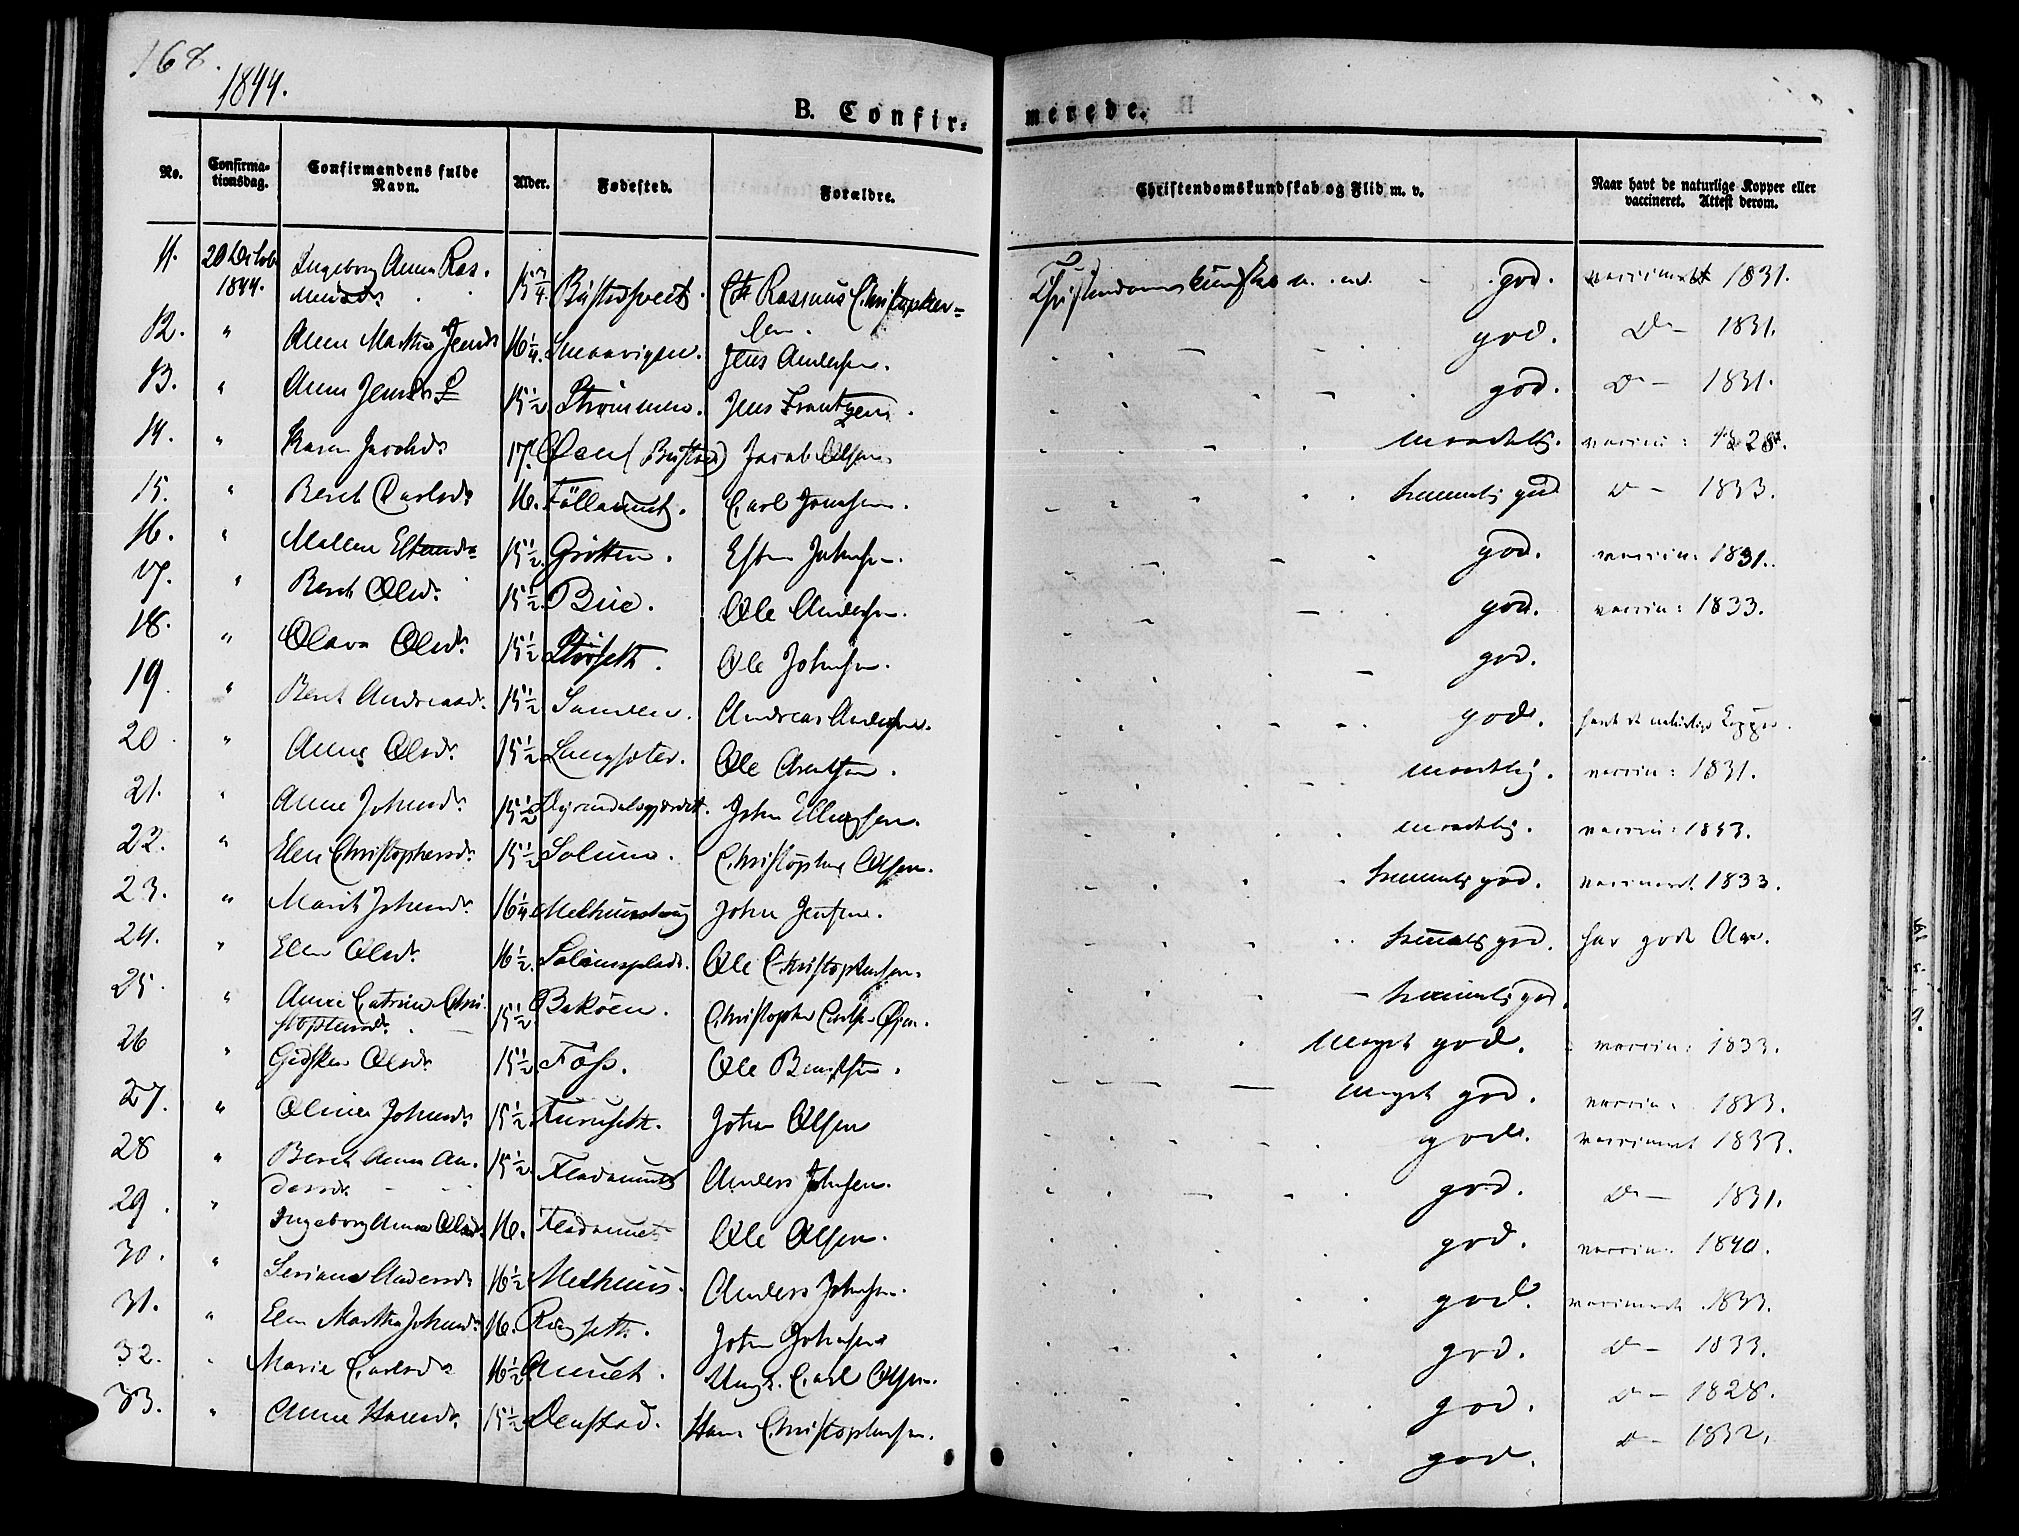 168.
1844.
B. Confir- merede.
No. Confirma-tionsdag. Confirmandens fulde Navn. Alder. Fødested. Forældre. Christendomskundskab og Flid m. v. Naar havt de naturlige Kopper eller vaccineret. Attest derom.
11. 20 Octob 1844. Ingeborg Anna Ras- 15 3/4. Rasmus Christophersen. god. vaccineret 1831.
12. " Anne Martha Jensd. 16 1/4. Jens Andersen. god. Do - 1831.
13. " Anne Jensd. 15 1/2 Strømmen. Jens Frantzen. god. Do - 1831.
14. " Karen Jacobsd. 17. Jacob Olsen. maadelig. vaccin: 1828.
15. " Beret Carlsd. 16. Carl Jonsen. temmelig god Do - 1833.
16. " Malene Estensd. 15 1/2. Grøtten. Esten Johnsen. god. vaccin: 1831.
17. " Beret Olsd. 15 1/2. Bue. Ole Andersen. god. vaccin: 1833.
18. " Olava Olsd. 15 1/2 Ole Johnsen. god.
19. " Beret Andreasd. 15 1/2 Sanden. Andreas Andersen. god. havt de naturlige Kopper.
20. " Anne Olsd. 15 1/2 Langsæter. Ole Arntsen. maadelig. vaccin: 1831.
21. " Anne Johnsd. 15 1/2 John Ellingsen. maadelig. vaccin: 1833.
22. " Elen Christophersd. 15 1/2 Solum. Christopher Olsen. temmelig god. vaccineret 1833.
23. " Marit Johnsd. 16 1/4 John Jensen. temmelig god. har gode Ar.
24. " Elen Olsd. 16 1/2. Solumsplads. Ole Christophersen. temmelig god.
25. " Anne Catrine Chri-stophersd. 15 1/2 Bekøen. Christopher meget god. vaccin: 1833.
26 " Gidsken Olsd. 15 1/2 Foss. Ole Bendtsen. meget god. vaccin: 1833.
27. " Oline Johnsd. 15 1/2. Furuseth. John Olsen god. vaccineret 1833.
28 " Beret Anna An-dersd. 15 1/2 Anders Johnsen. god. Do - 1831.
29. " Ingeborg Anna Olsd. 16. Ole Olsen. god. vaccin: 1840.
30. " Andersd. 16 1/2 Melhuus. Anders Johnsen. god. vaccineret 1833.
31. " Elen Martha Johnsd. 16. Ringseth. John Johnsen god. Do - 1833.
32. " Marie Carlsd. 16 1/2 Aunet. Ungk. Carl Olsen. god. Do - 1828.
33. " Anne Hansd. 15 1/2 Denstad. Hans Christophersen. god. Do - 1832.